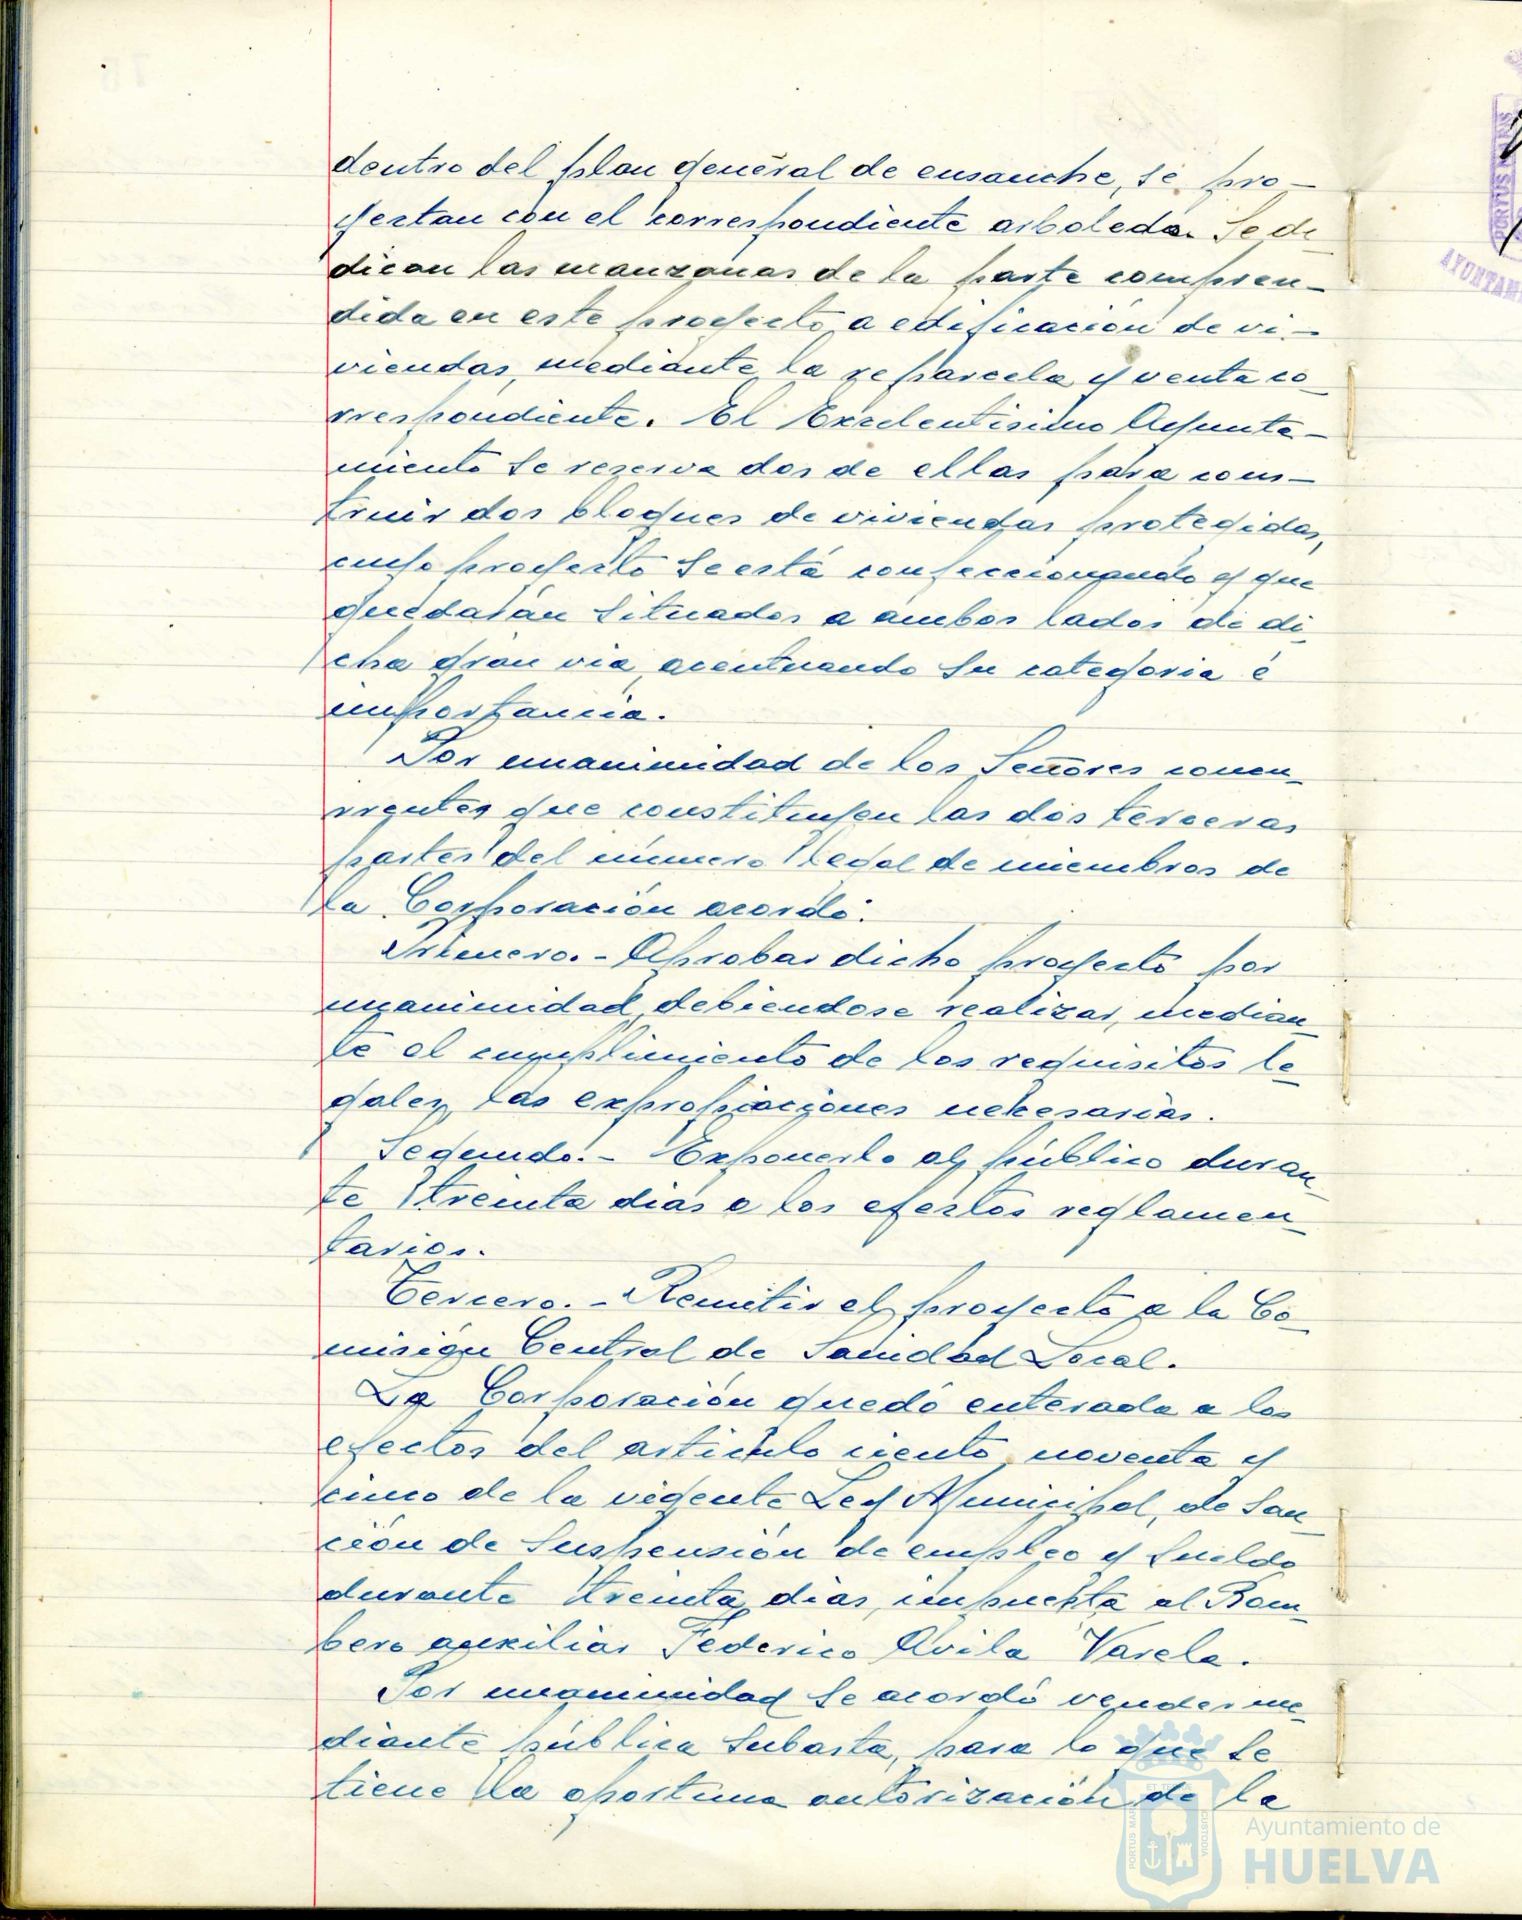 dentro del plan general de ensanche, se pro-
yectan con el correspondiente arboleda. Se de-
dican las manzanas de la parte compren-
dida en este proyecto a edificación de vi-
viendas, mediante la reparcela y venta co-
rrespondiente. El Excelentisimo Ayunta-
miento se reserva dos de ellas para cons-
truir dos bloques de viviendas protegidas,
cuyo proyecto se está confeccionando y que
quedarán situados a ambos lados de di-
cha gran via, acentuando su categoria é
importancia.
Por unanimidad de los Señores concu-
rrentes que constituyen las dos terceras
partes del número legal de miembros de
la Corporación acordó:
Primero.- Aprobar dicho proyecto por
unanimidad, debiendose realizar, median-
te el cumplimiento de los requisitos le-
gales, las expropiaciones necesarias.
Segundo.- Exponerlo al público duran-
te treinta dias a los efectos reglamen-
tarios.
Tercero.- Remitir el proyecto a la Co-
misión Central de Sanidad Local.
La Corporación quedó enterada a los
efectos del articulo ciento noventa y
cinco de la vigente Ley Municipal, de San-
ción de Suspensión de empleo y Sueldo
durante treinta dias, impuesta al Bom-
bero auxiliar Federico Avila Varela.
Por unanimidad se acordó vender me-
diante pública subasta, para lo que se
tiene la oportuna autorización de la
PORTUS MARIS
AYUNTAM
Ayuntamiento de
HUELVA